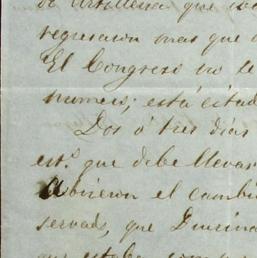 de artilleria que
regresaron mas que
El Congreso no le
numero; está citad
Dos ó tres dias
est.ᵃ que debe llevar
Abrieron el cambi
servado, que
que estaba